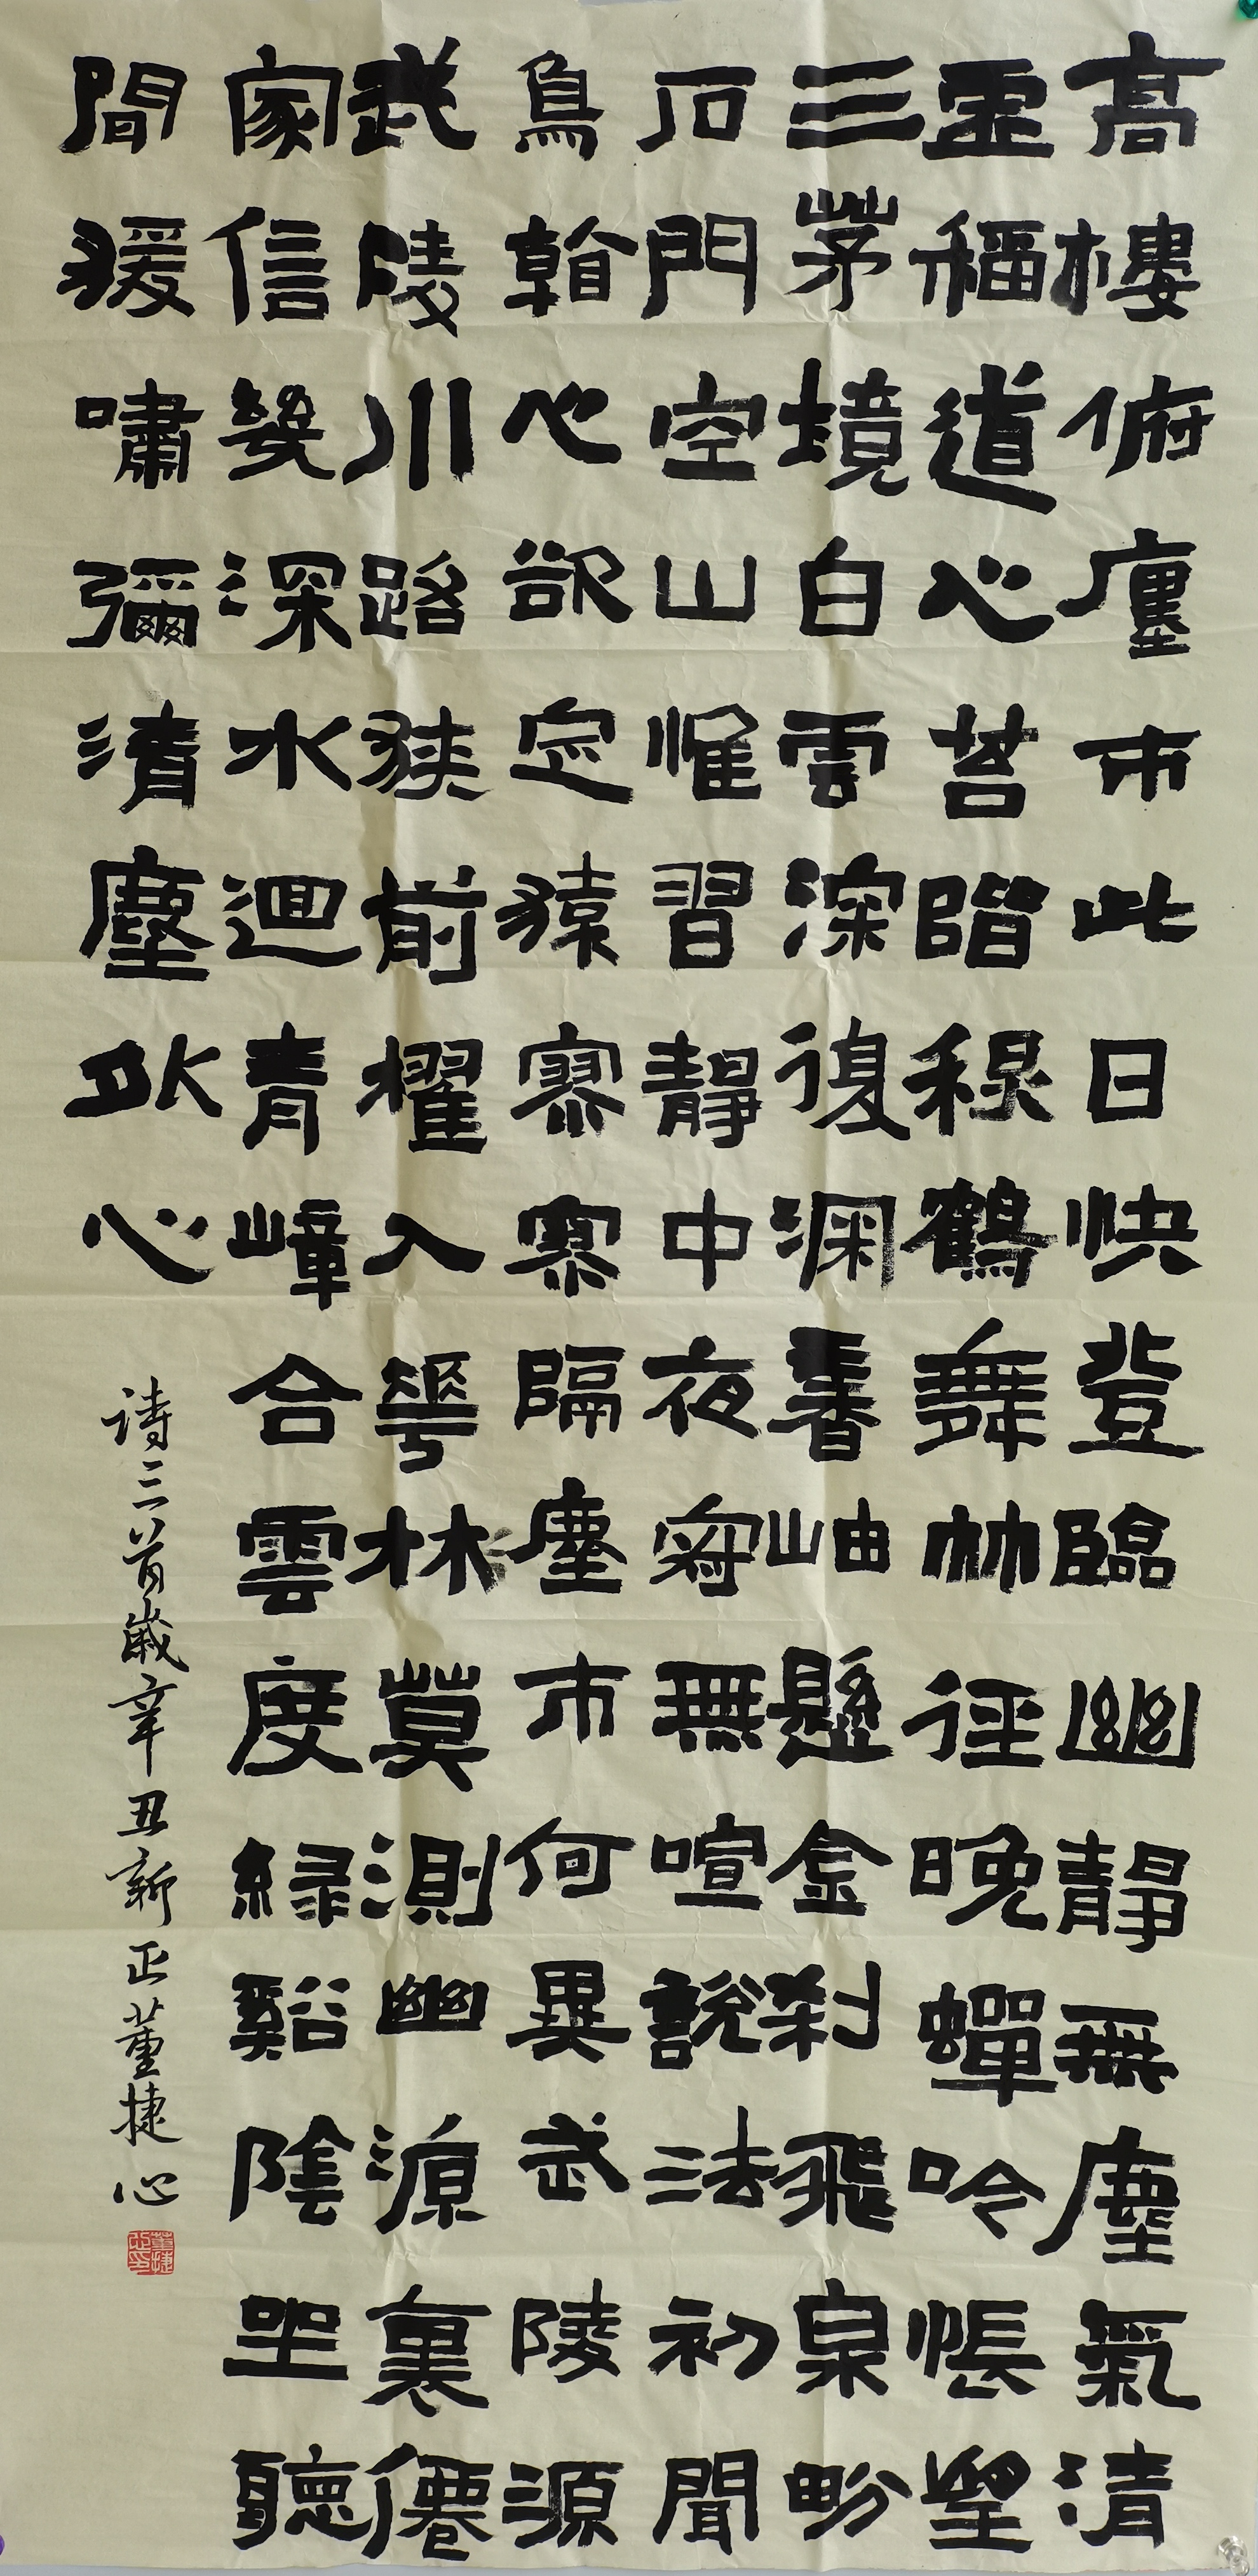 高樓俯塵市此日快登臨幽靜無塵氣清
靈福道心苔階穩鶴舞竹徑晚蟬吟悵望
三茅境白雲深復深香岫懸金刹飛泉界
石門空山惟習靜中夜寂無喧說法初聞
鳥看心欲定猿寥寥隔塵市何異武陵源
武陵川路狹前櫂入華林莫測幽源裏僊
家信幾深水迴青嶂合雲度綠谿陰坐聽
閒猨嘯彌清塵外心
诗三首歲辛丑新正董捷心